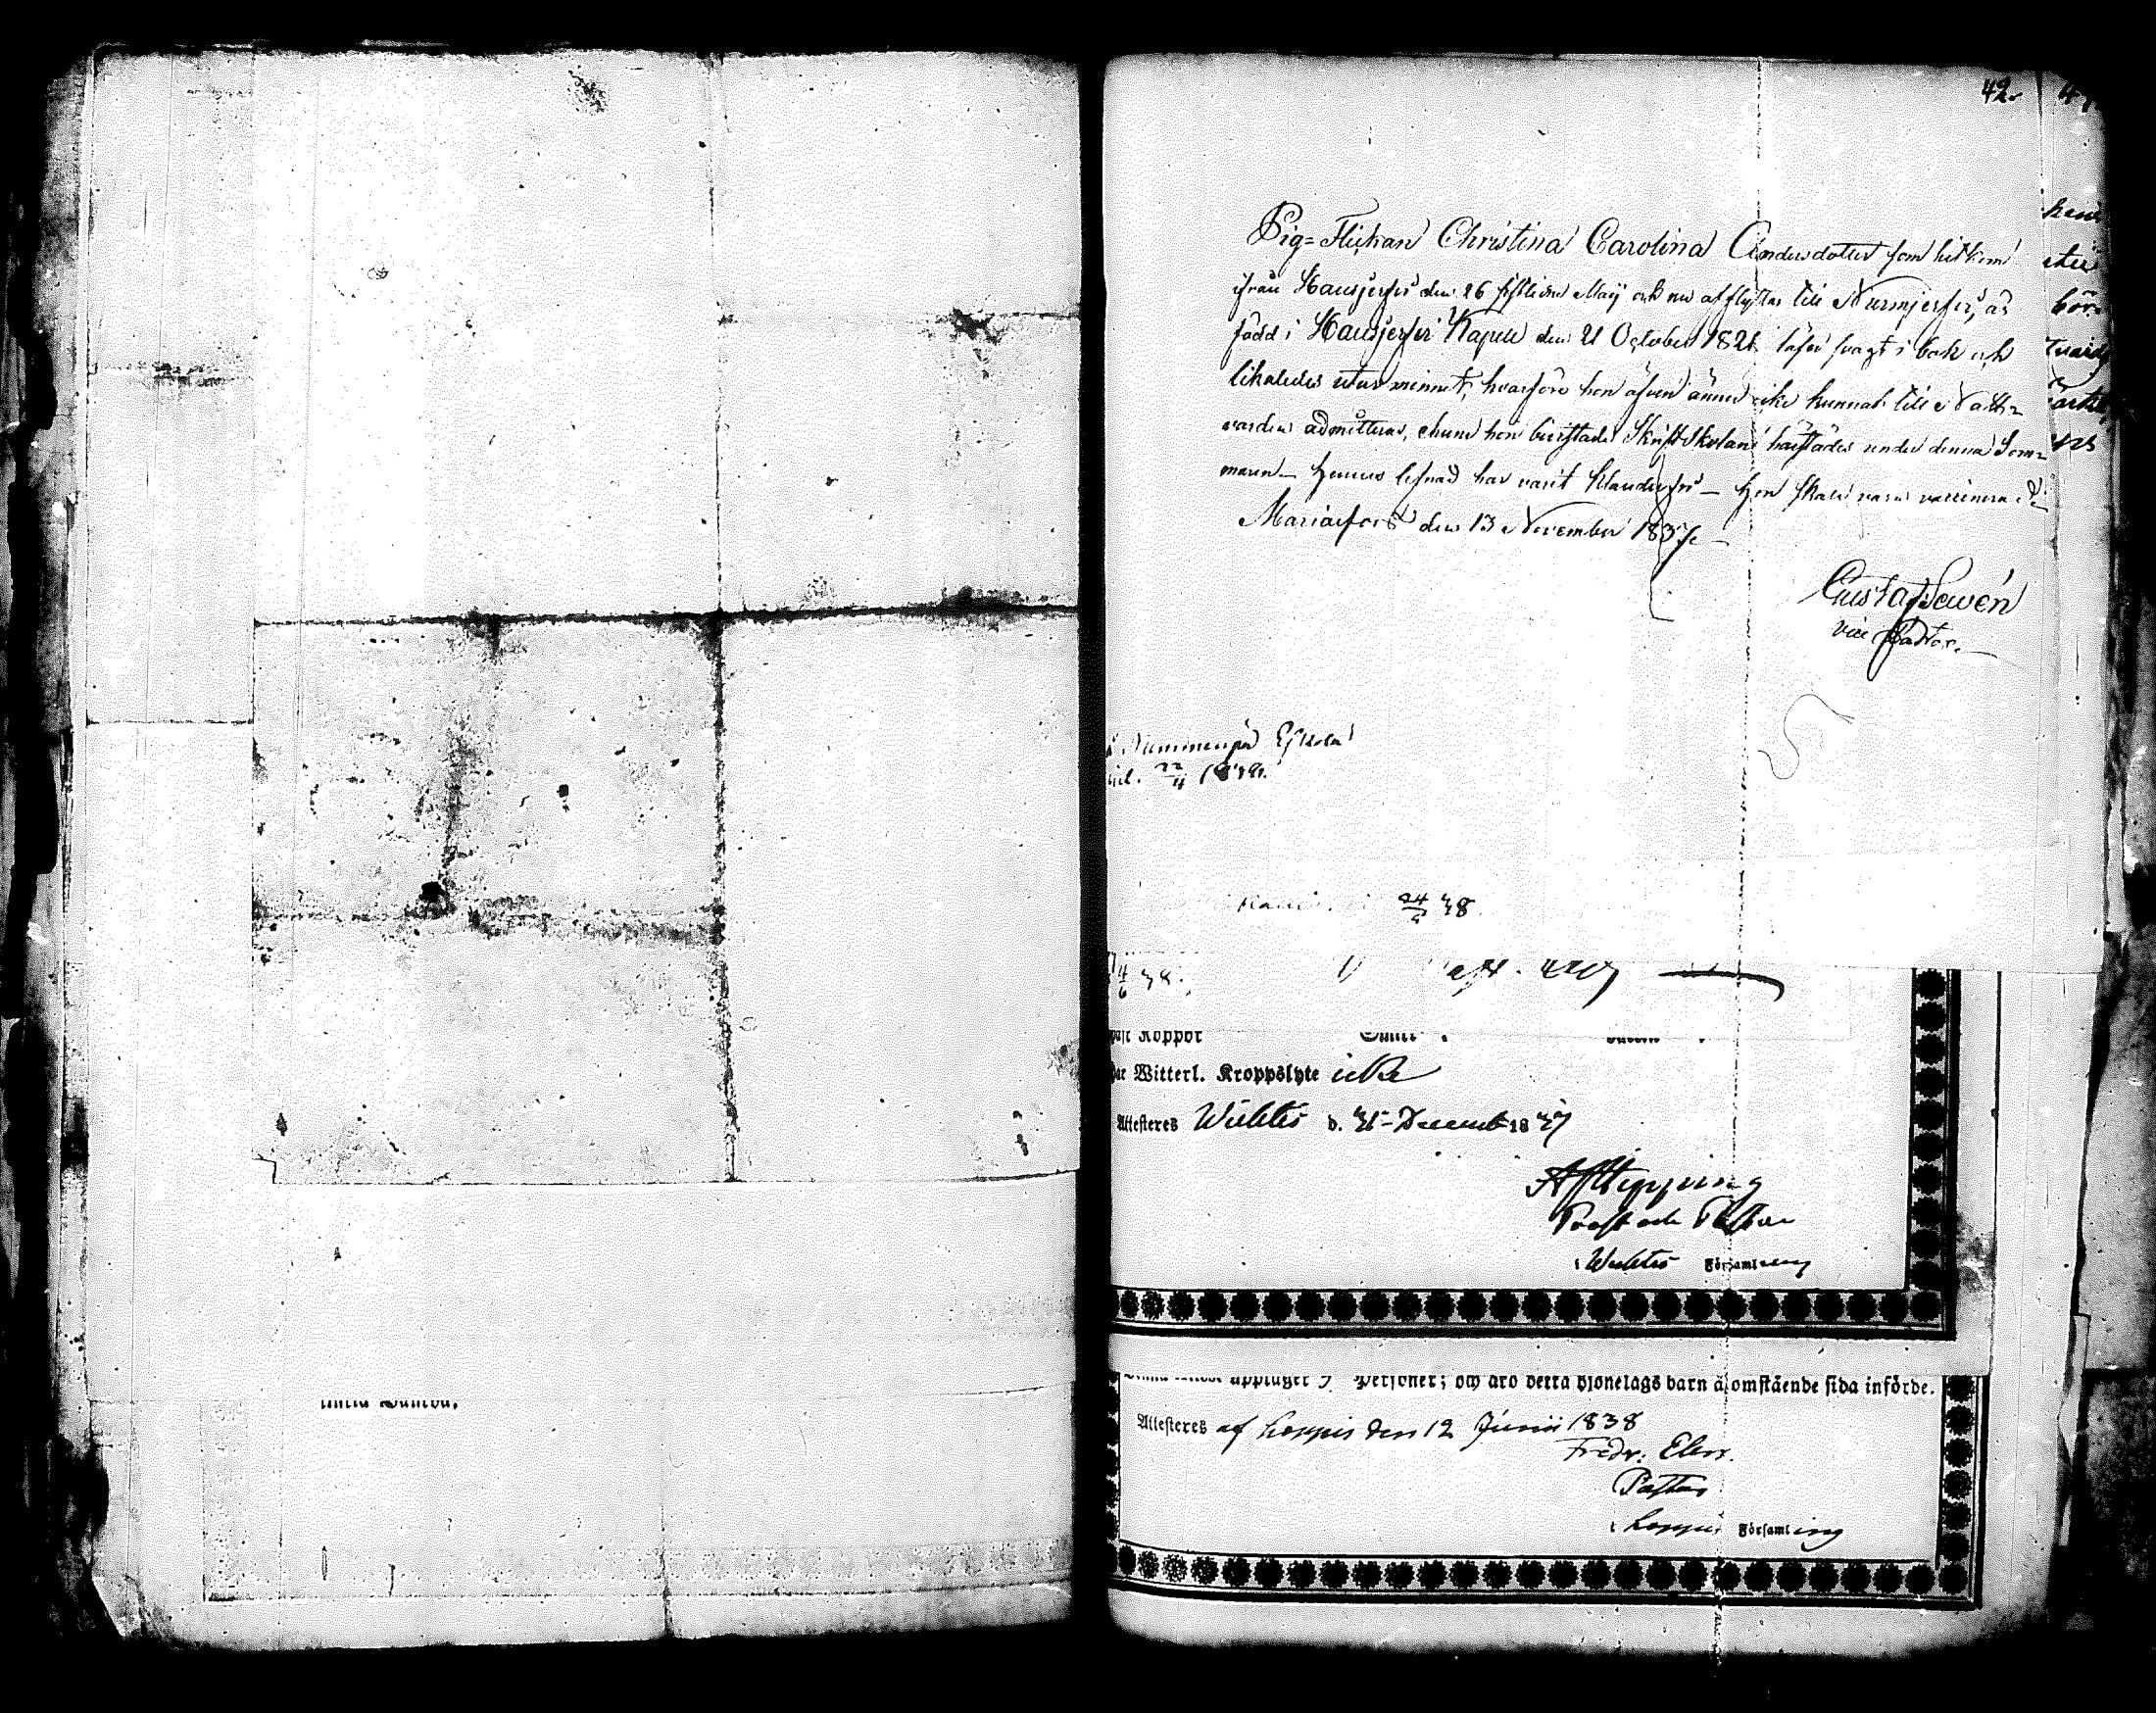 42.
Pig-Flickan Christina Carolina Andersdotter som hitkom
ifrån Hausjerfvi den 26 sistlidne Maij och nu afflyttar till Nurmjerfvi, är
född i Hausjerfvi Kapell den 21 October 1821, läser svagt i bok och
likaledes utur minnet, hvarföre hon äfven ännu icke kunnat till Natt-
varden admitteras, ehuru hon bevistade Skriftskolan härstädes under denna Som-
maren - Hennes lefnad har varit klanderfri - Hon skall vara vaccinerad.
Mariaefors den 13 November 1837.
Gustaf Lewén
vice Pastor.
22/4 1838.
24/4 38
4/6 38.
Koppor
Witterl. Kroppslyte icke
Attesteres Wichtis d. 31 Decemb 1837
A F Hipping
Prost och Pastor
i Wichtis Församling
upptager Personer; och äro detta hjonelags barn å omstående sida införde.
Attesteres af Loppis den 12 Junii 1838
Fredr. Elers.
Pastor
i Loppis Församling